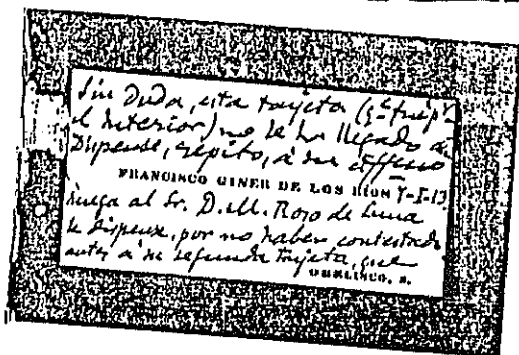 Sin duda, esta tarjeta (
el interior) no le ha llegado á
Dispense, repito, á su
FRANCISCO GINER DE LOS RIOS 7-I-13
ruega al Sr. D. M. Roso de Luna
le dispense, por no haber contestado
antes á su segunda tarjeta, que
OBELISCO, 8.